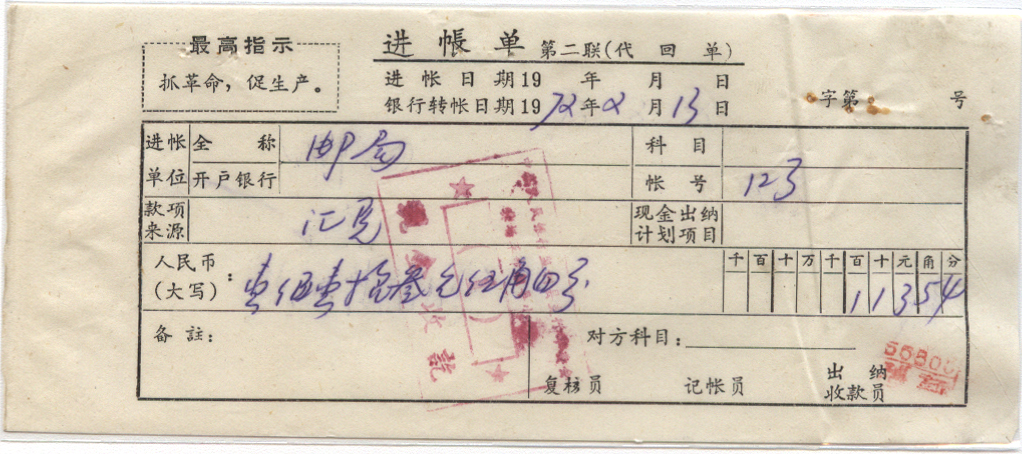 最高指示
抓革命，促生产。
进帐单 第二联(代回单)
进帐日期19 年 月 日
银行转帐日期1972年2月13日
字第 号
进帐单位
全称 邮局
开户银行
科目
帐号 123
款项来源 汇兑
现金出纳计划项目
人民币(大写): 壹佰壹拾叁元伍角四分
千百十万千百十元角分
11354
备註:
对方科目:
复核员 记帐员 出纳收款员
现金收讫